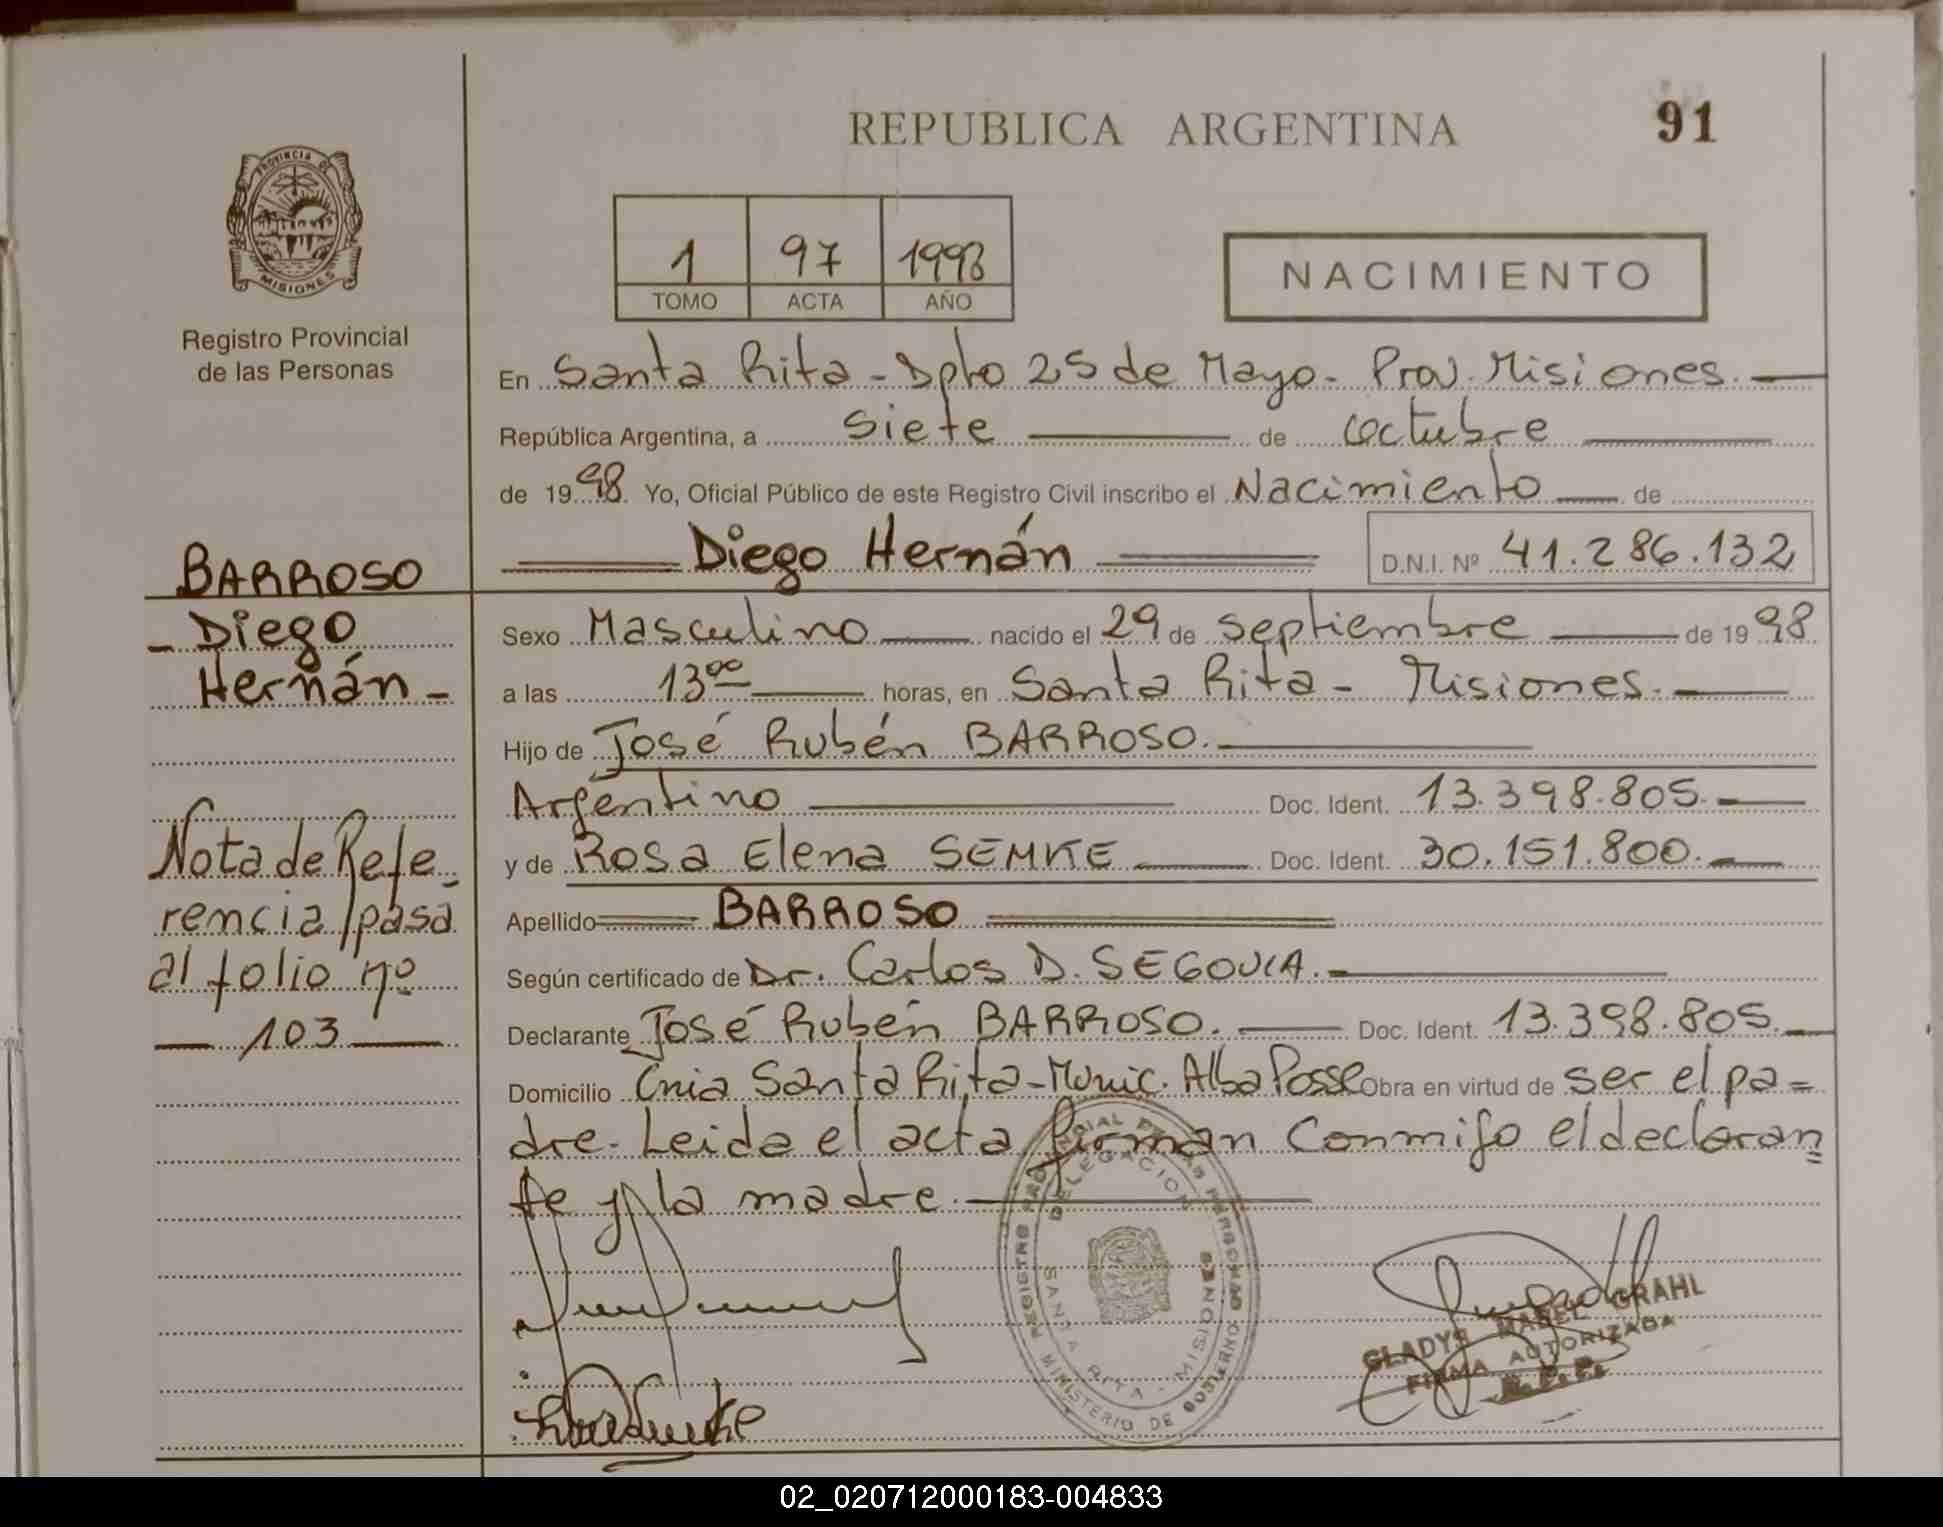 REPUBLICA ARGENTINA
91
PROVINCIA DE
MISIONES
Registro Provincial
de las Personas
1 97 1998
TOMO ACTA AÑO
NACIMIENTO
En Santa Rita - Dpto 25 de Mayo - Prov. Misiones.
República Argentina, a siete de octubre
de 1998 Yo, Oficial Público de este Registro Civil inscribo el Nacimiento de
Diego Hernán D.N.I. Nº 41.286.132
Sexo Masculino nacido el 29 de septiembre de 1998
a las 13ºº horas, en Santa Rita - Misiones.
Hijo de José Rubén BARROSO.
Argentino Doc. Ident. 13.398.805.
y de Rosa Elena SEMKE Doc. Ident. 30.151.800.
Apellido BARROSO
Según certificado de Dr. Carlos D. SEGOVIA.
Declarante José Rubén BARROSO. Doc. Ident. 13.398.805.
Domicilio Cnia Santa Rita - Munic. Alba Posse Obra en virtud de ser el pa=
dre - Leida el acta firman conmigo el declaran=
te y la madre.
BARROSO
- Diego
Hernán -
Nota de Refe-
rencia/pasa
al folio nº
103
REGISTRO PROVINCIAL DE LAS PERSONAS
DELEGACION
SANTA RITA - MISIONES
MINISTERIO DE GOBIERNO
GLADYS MABEL GRAHL
FIRMA AUTORIZADA
R. P. P.
02_020712000183-004833